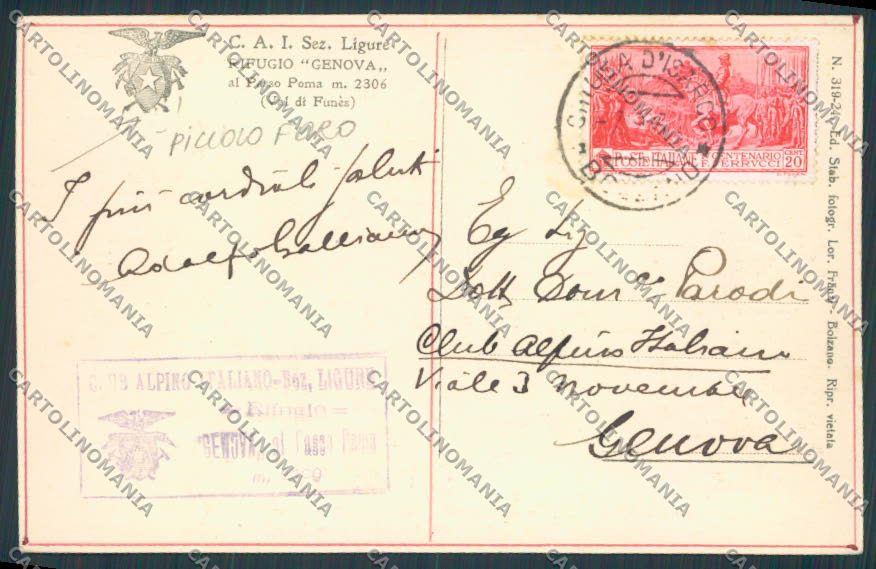 C. A. I. Sez. Ligure
RIFUGIO "GENOVA"
al Passo Poma m. 2306
(Col di Funès)
PICCOLO FARO
I più cordiali saluti
Adolfo
CHIUSA D'ISARCO
BOLZANO
POSTE ITALIANE
CENTENARIO
F. FERRVCCI
CENT.
20
Eg Sig
Dott Dom Parodi
Club Alpino Italiano
Viale 3 Novembre
Genova
CLUB ALPINO ITALIANO-Sez. LIGURE
Rifugio =
"GENOVA" al Passo Poma
m.
N. 319-24 - Ed. Stab. fotogr. Lor. Fränzl - Bolzano. Ripr. vietata
CARTOLINOMANIA